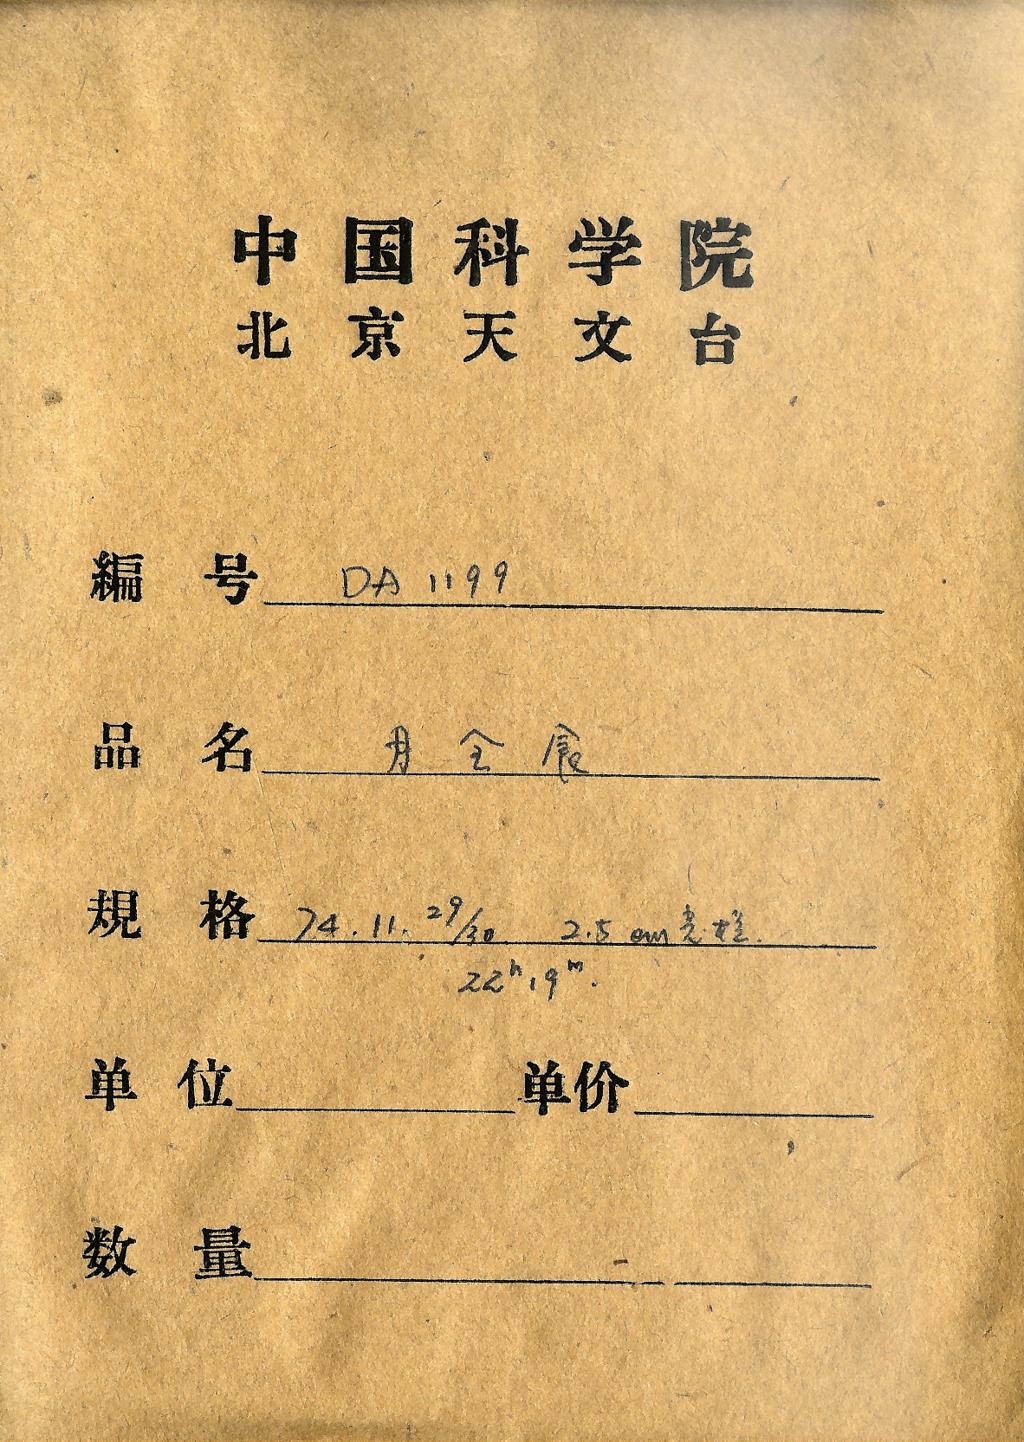 中国科学院
北京天文台
編号 DA 1199
品名 月全食
規格 74.11.29/30 2.5cm
22ʰ19ᵐ.
单位 单价
数量